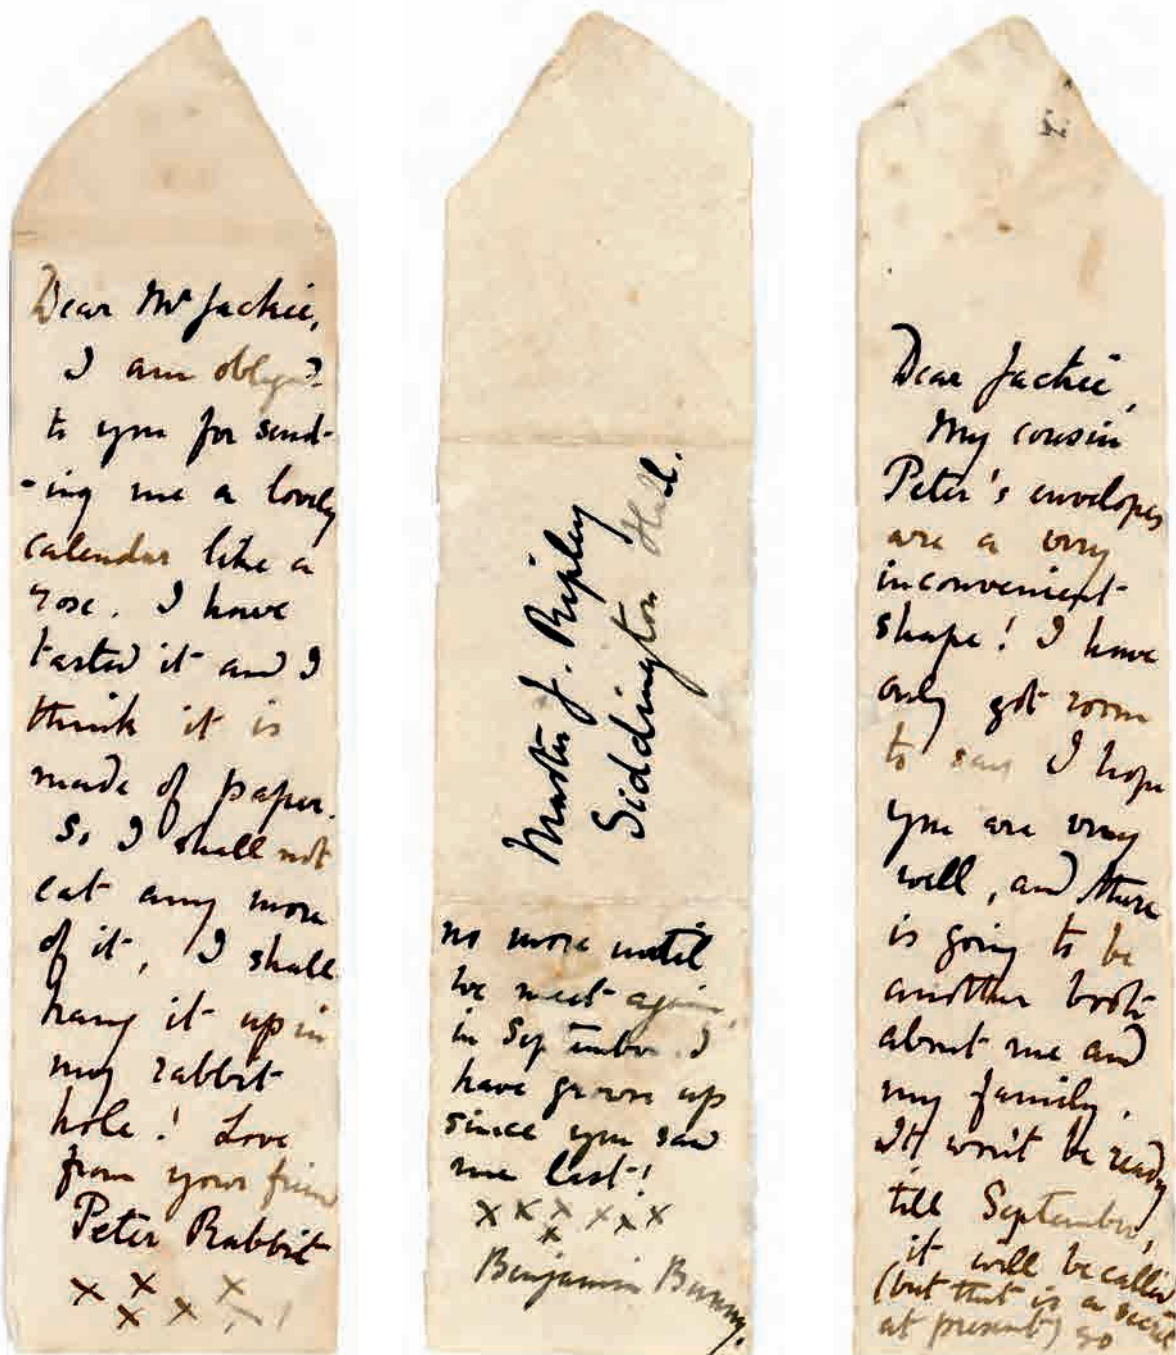 Dear Mr Jackie,
I am oblig'd
to you for send-
-ing me a lovely
calendar like a
rose. I have
tasted it and I
think it is
made of paper.
So I shall not
eat any more
of it, I shall
hang it up in
my rabbit
hole! Love
from your friend
Peter Rabbit
x x x
x x x
Master J. Ripley
Siddington Hall.
no more until
we meet again
in September. I
have grown up
since you saw
me last!
x x x x x x
x
Benjamin Bunny.
Dear Jackie,
My cousin
Peter's envelopes
are a very
inconvenient
shape! I have
only got room
to say I hope
you are very
well, and there
is going to be
another book
about me and
my family.
It won't be ready
till September,
it will be called
(but that is a secret
at present) so